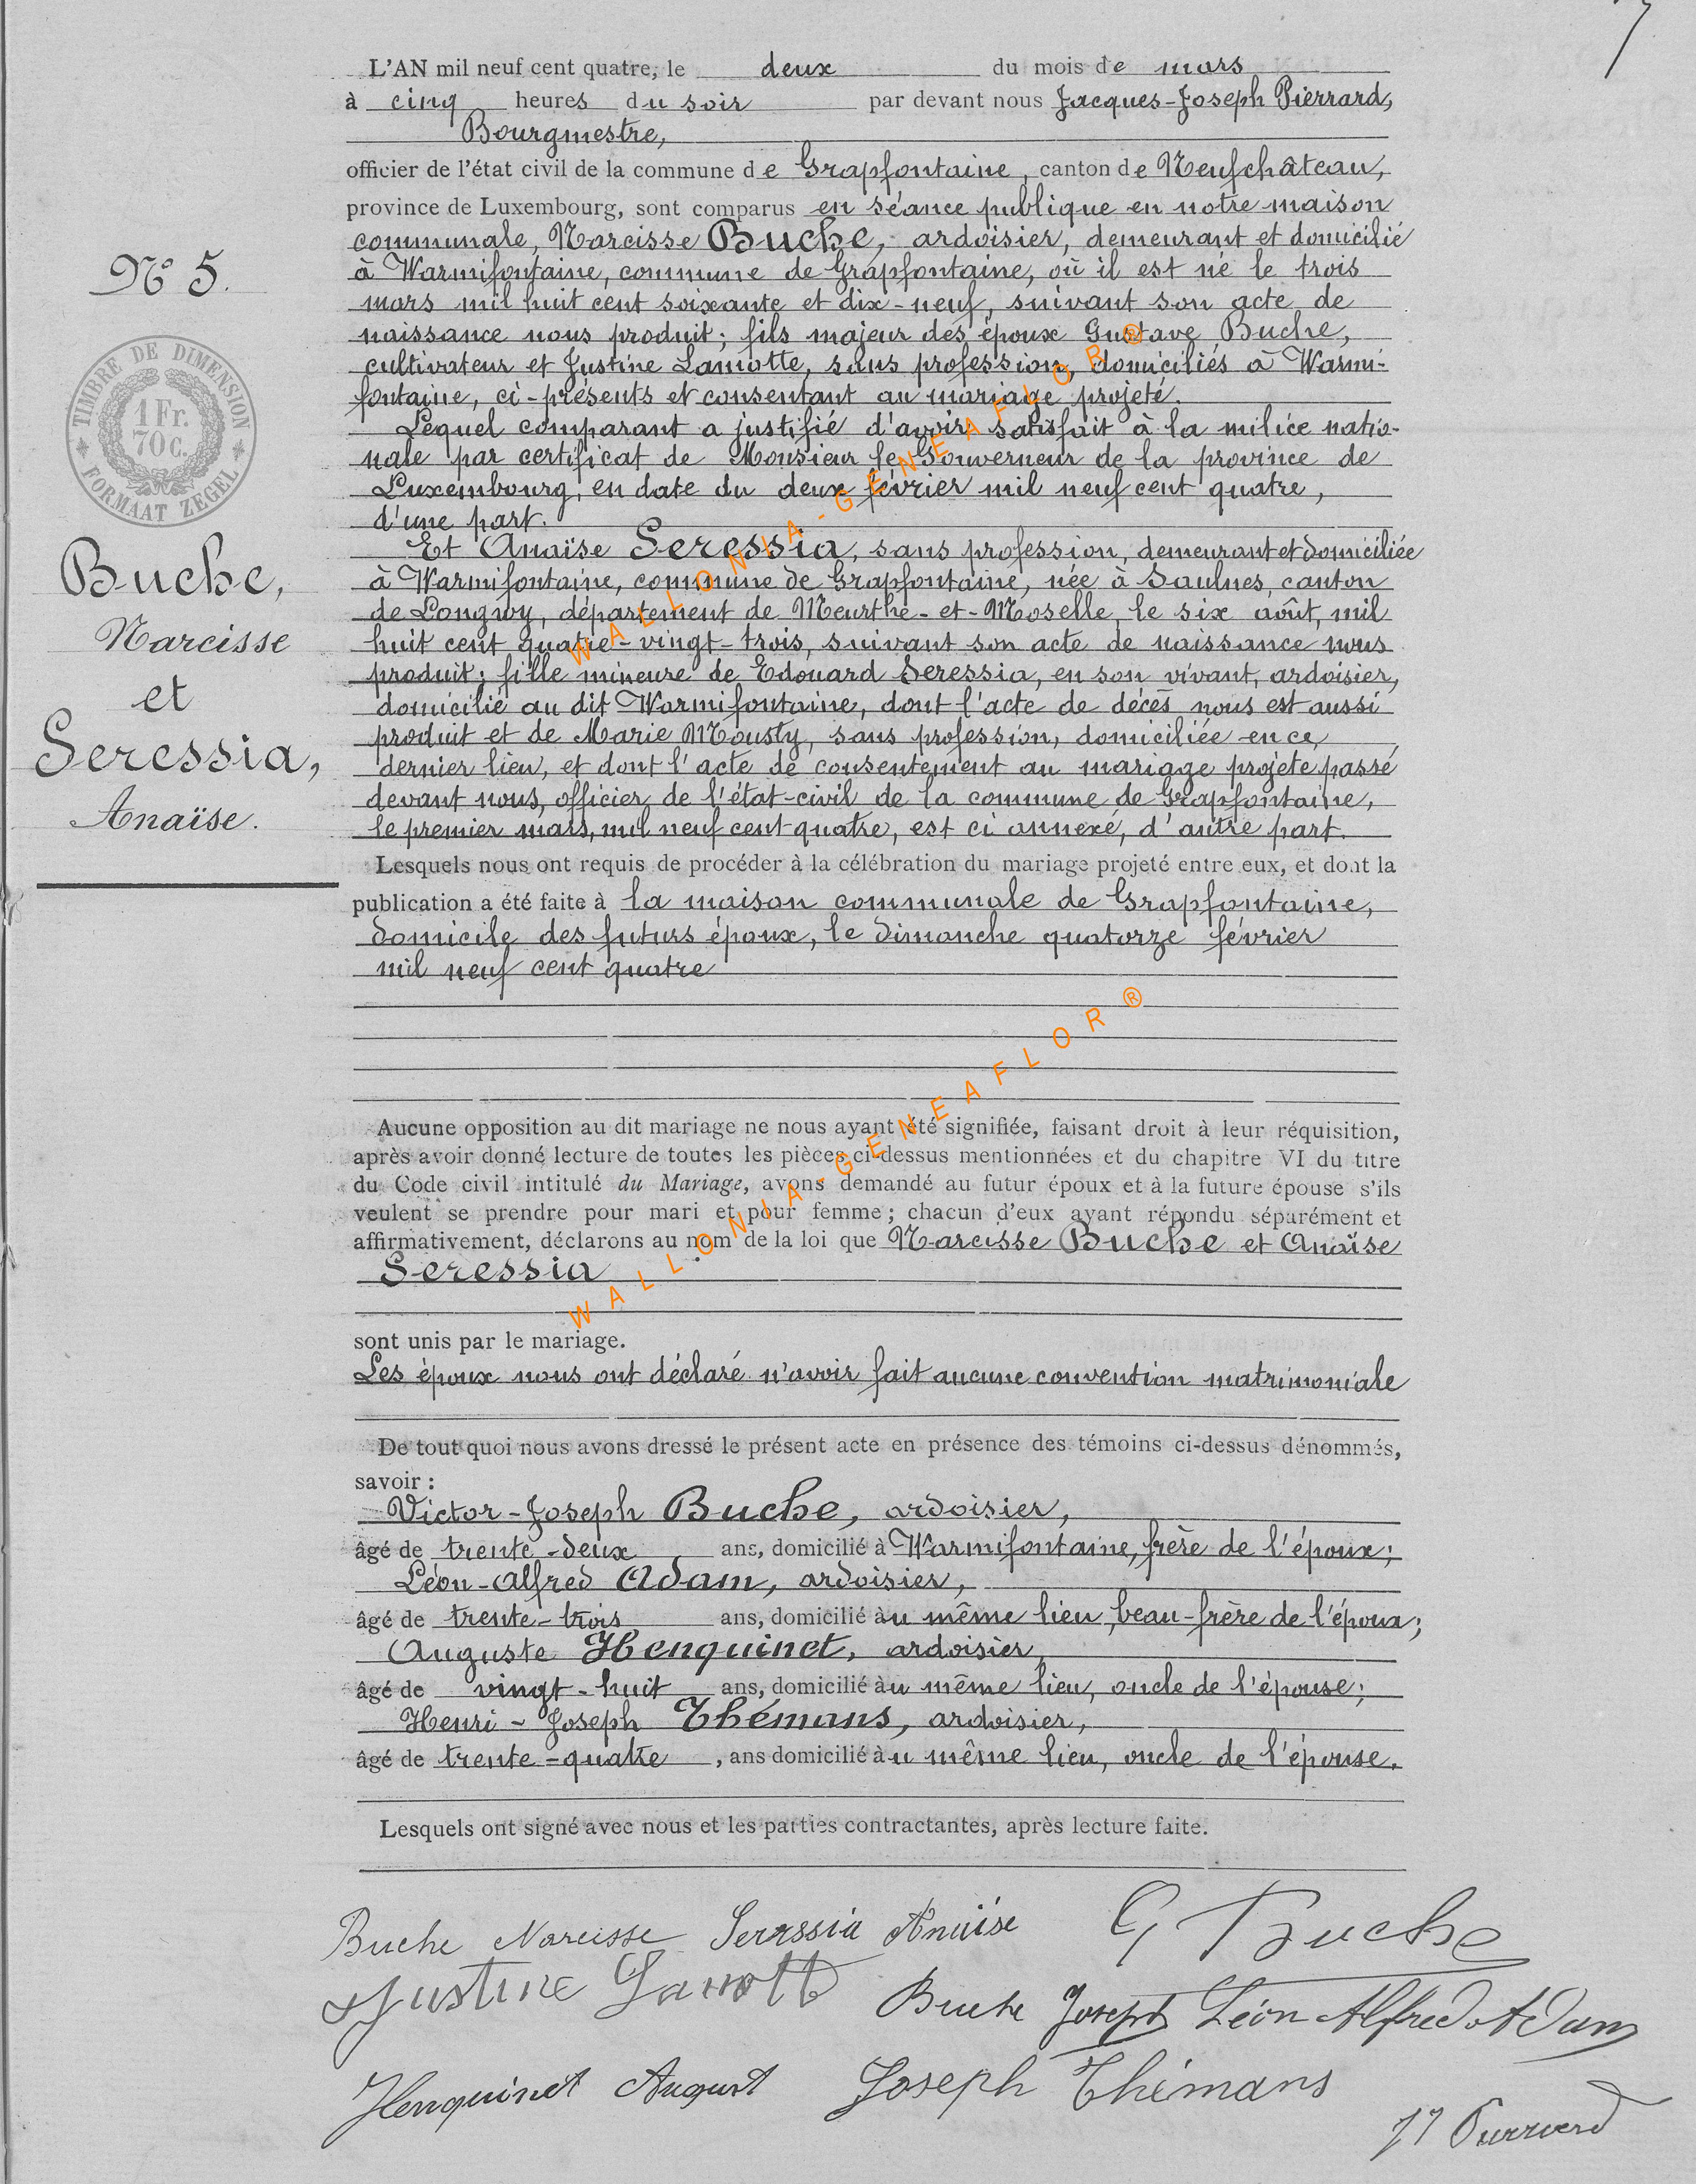 L'AN mil neuf cent quatre, le deux du mois de mars
à cinq heures du soir par devant nous Jacques-Joseph Pierrard,
Bourgmestre,
officier de l'état civil de la commune de Grapfontaine, canton de Neufchâteau,
province de Luxembourg, sont comparus en séance publique en notre maison
communale, Narcisse Buche, ardoisier, demeurant et domicilié
à Warmifontaine, commune de Grapfontaine, où il est né le trois
mars mil huit cent soixante et dix-neuf, suivant son acte de
naissance nous produit; fils majeur des époux Gustave Buche,
cultivateur et Justine Lamotte, sans profession, domiciliés à Warmi-
fontaine, ci-présents et consentant au mariage projeté.
Lequel comparant a justifié d'avoir satisfait à la milice natio-
nale par certificat de Monsieur le Gouverneur de la province de
Luxembourg, en date du deux février mil neuf cent quatre,
d'une part.
Et Anaïse Seressia, sans profession, demeurant et domiciliée
à Warmifontaine, commune de Grapfontaine, née à Saulnes, canton
de Longwy, département de Meurthe-et-Moselle, le six août, mil
huit cent quatre-vingt-trois, suivant son acte de naissance nous
produit; fille mineure de Edouard Seressia, en son vivant, ardoisier,
domicilié au dit Warmifontaine, dont l'acte de décès nous est aussi
produit et de Marie Mousty, sans profession, domiciliée en ce
dernier lieu, et dont l'acte de consentement au mariage projeté passé
devant nous, officier de l'état-civil de la commune de Grapfontaine,
le premier mars, mil neuf cent quatre, est ci annexé, d'autre part.
Lesquels nous ont requis de procéder à la célébration du mariage projeté entre eux, et dont la
publication a été faite à la maison communale de Grapfontaine,
domicile des futurs époux, le dimanche quatorze février
mil neuf cent quatre
Aucune opposition au dit mariage ne nous ayant été signifiée, faisant droit à leur réquisition,
après avoir donné lecture de toutes les pièces ci-dessus mentionnées et du chapitre VI du titre
du Code civil intitulé du Mariage, avons demandé au futur époux et à la future épouse s'ils
veulent se prendre pour mari et pour femme; chacun d'eux ayant répondu séparément et
affirmativement, déclarons au nom de la loi que Narcisse Buche et Anaïse
Seressia
sont unis par le mariage.
Les époux nous ont déclaré n'avoir fait aucune convention matrimoniale
De tout quoi nous avons dressé le présent acte en présence des témoins ci-dessus dénommés,
savoir :
Victor-Joseph Buche, ardoisier,
âgé de trente-deux ans, domicilié à Warmifontaine, frère de l'époux;
Léon-Alfred Adam, ardoisier,
âgé de trente-trois ans, domicilié au même lieu, beau-frère de l'époux;
Auguste Henquinet, ardoisier,
âgé de vingt-huit ans, domicilié au même lieu, oncle de l'épouse;
Henri-Joseph Thémans, ardoisier,
âgé de trente-quatre, ans domicilié au même lieu, oncle de l'épouse.
Lesquels ont signé avec nous et les parties contractantes, après lecture faite.
Buche Narcisse Seressia Anaise G Buche
Justine Lamott Buche Joseph Léon Alfred Adam
Henquinet August Joseph Thémans
JJ Pierrard
N° 5.
TIMBRE DE DIMENSION
1 Fr.
70 C.
FORMAAT ZEGEL
Buche,
Narcisse
et
Seressia,
Anaïse.
WALLONIA-GENEAFLOR ®
WALLONIA-GENEAFLOR ®